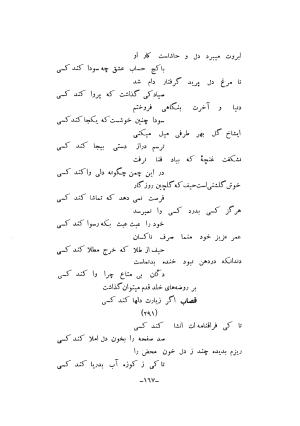 ابروت میبرد دل و حاشاست کار او
با کج حساب عشق چه سودا کند کسی
تا مرغ دل پرید گرفتار دام شد
صیاد کی گذاشت که پروا کند کسی
دنیا و آخرت بنگاهی فروختم
سودا چنین خوشست که یکجا کند کسی
ایشاخ گل بهر طرفی میل میکنی
ترسم دراز دستی بیجا کند کسی
نشکفت غنچهٔ که بباد فنا نرفت
در این چمن چگونه دلی وا کند کسی
خوش گلشنی است حیف که گلچین روزگار
فرصت نمی دهد که تماشا کند کسی
هرگز کسی بدرد کسی وا نمیرسد
خود را عبث عبث بکه رسوا کند کسی
عمر عزیز خود منما صرف ناکسان
حیف از طلا که خرج مطلا کند کسی
دندانکه در دهن نبود خنده بدنماست
دکان بی متاع چرا وا کند کسی
بر روضه‌های خلد قدم میتوان گذاشت
قصاب اگر زیارت دلها کند کسی
(۲۹۱)
تا کی فراقنامه ات انشا کند کسی
صد صفحه را بخون دل املا کند کسی
ریزم بدیده چند ز دل خون محض را
تا کی ز کوزه آب بدریا کند کسی
-۱۶۷-